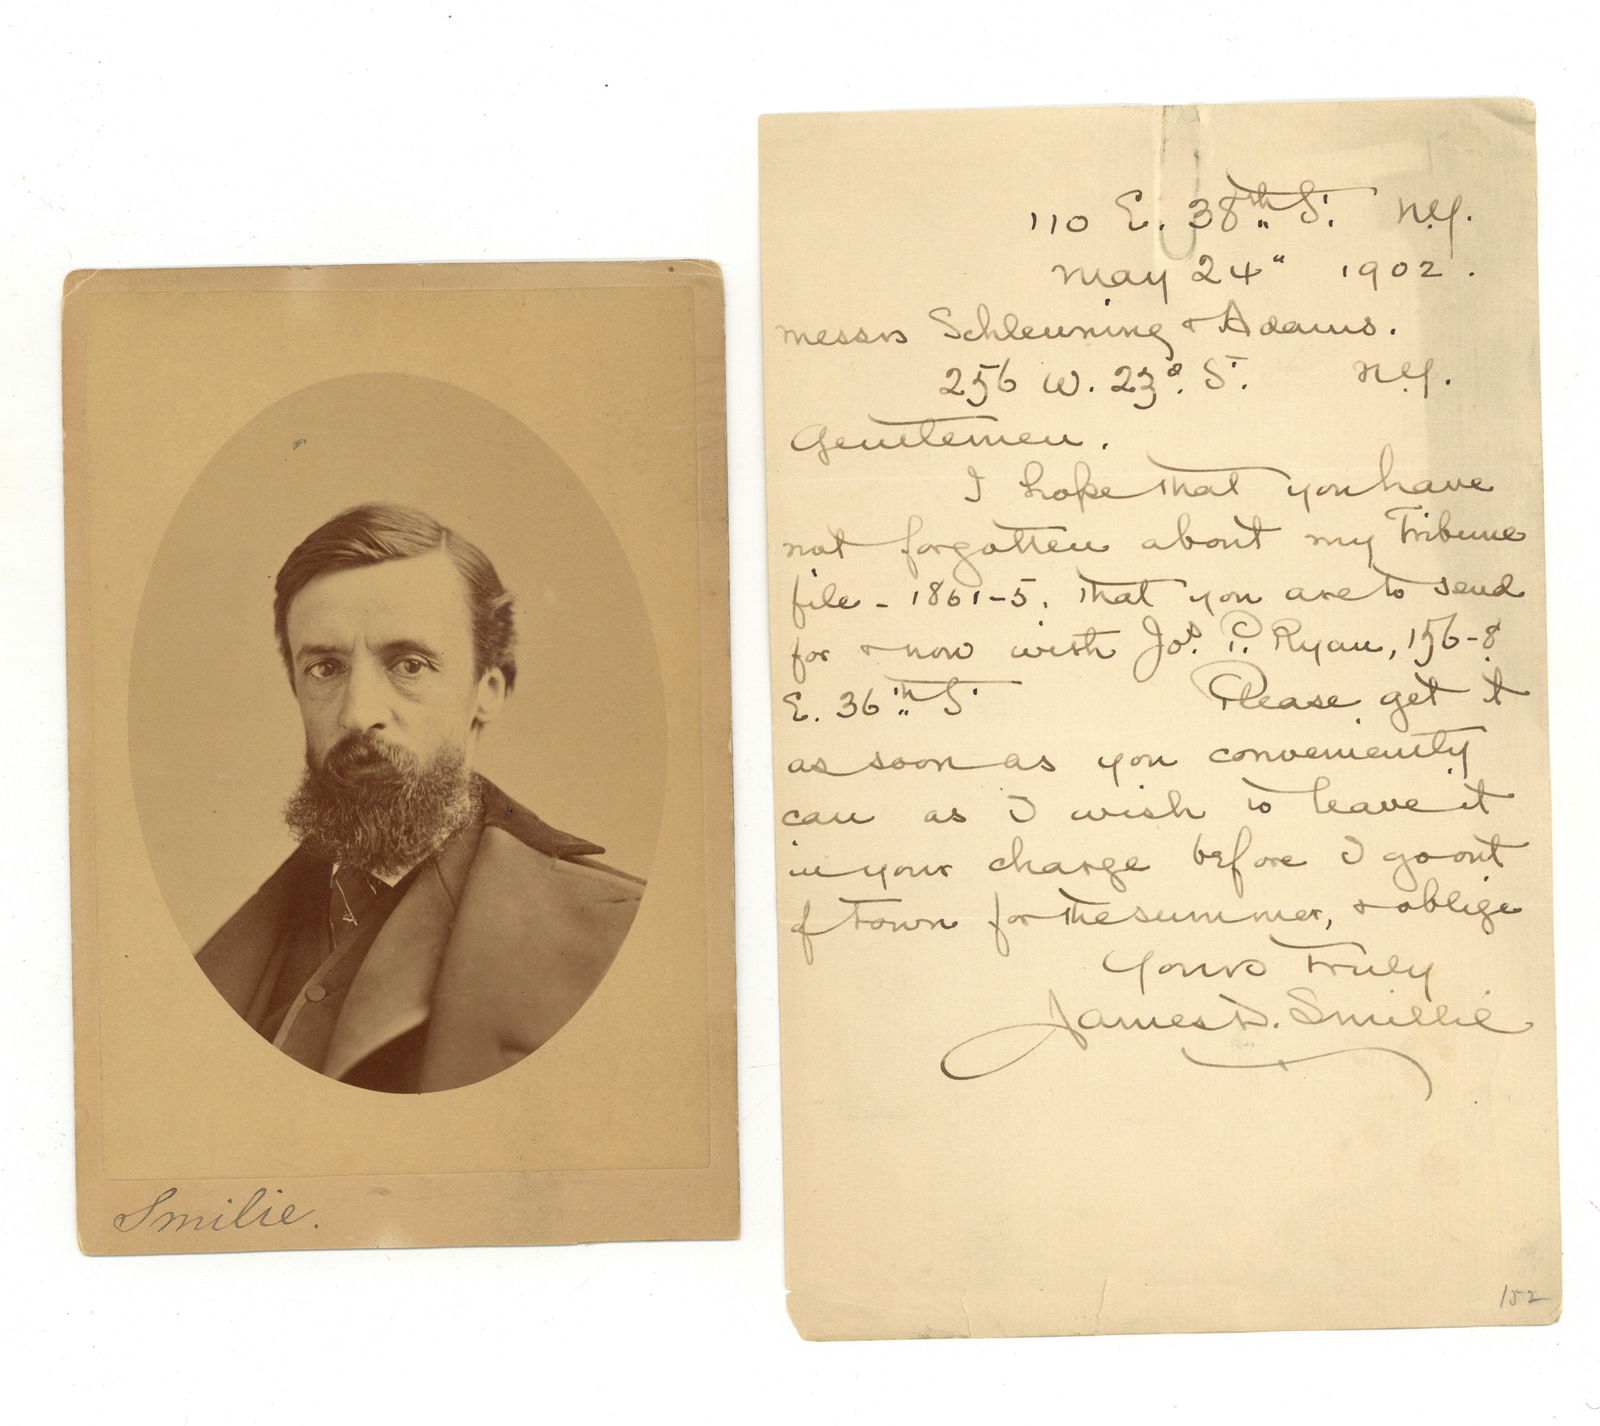 Smilie.
110 E. 38th St. N.Y.
May 24" 1902.
Messrs Schleuning & Adams.
256 W. 23d. St. N.Y.
Gentlemen.
I hope that you have
not forgotten about my Tribune
file - 1861-5. that you are to send
for & now with Jos. P. Ryan, 156-8
E. 36th St Please get it
as soon as you conveniently
can as I wish to leave it
in your charge before I go out
of town for the summer, & oblige
Yours Truly
James D. Smillie
152